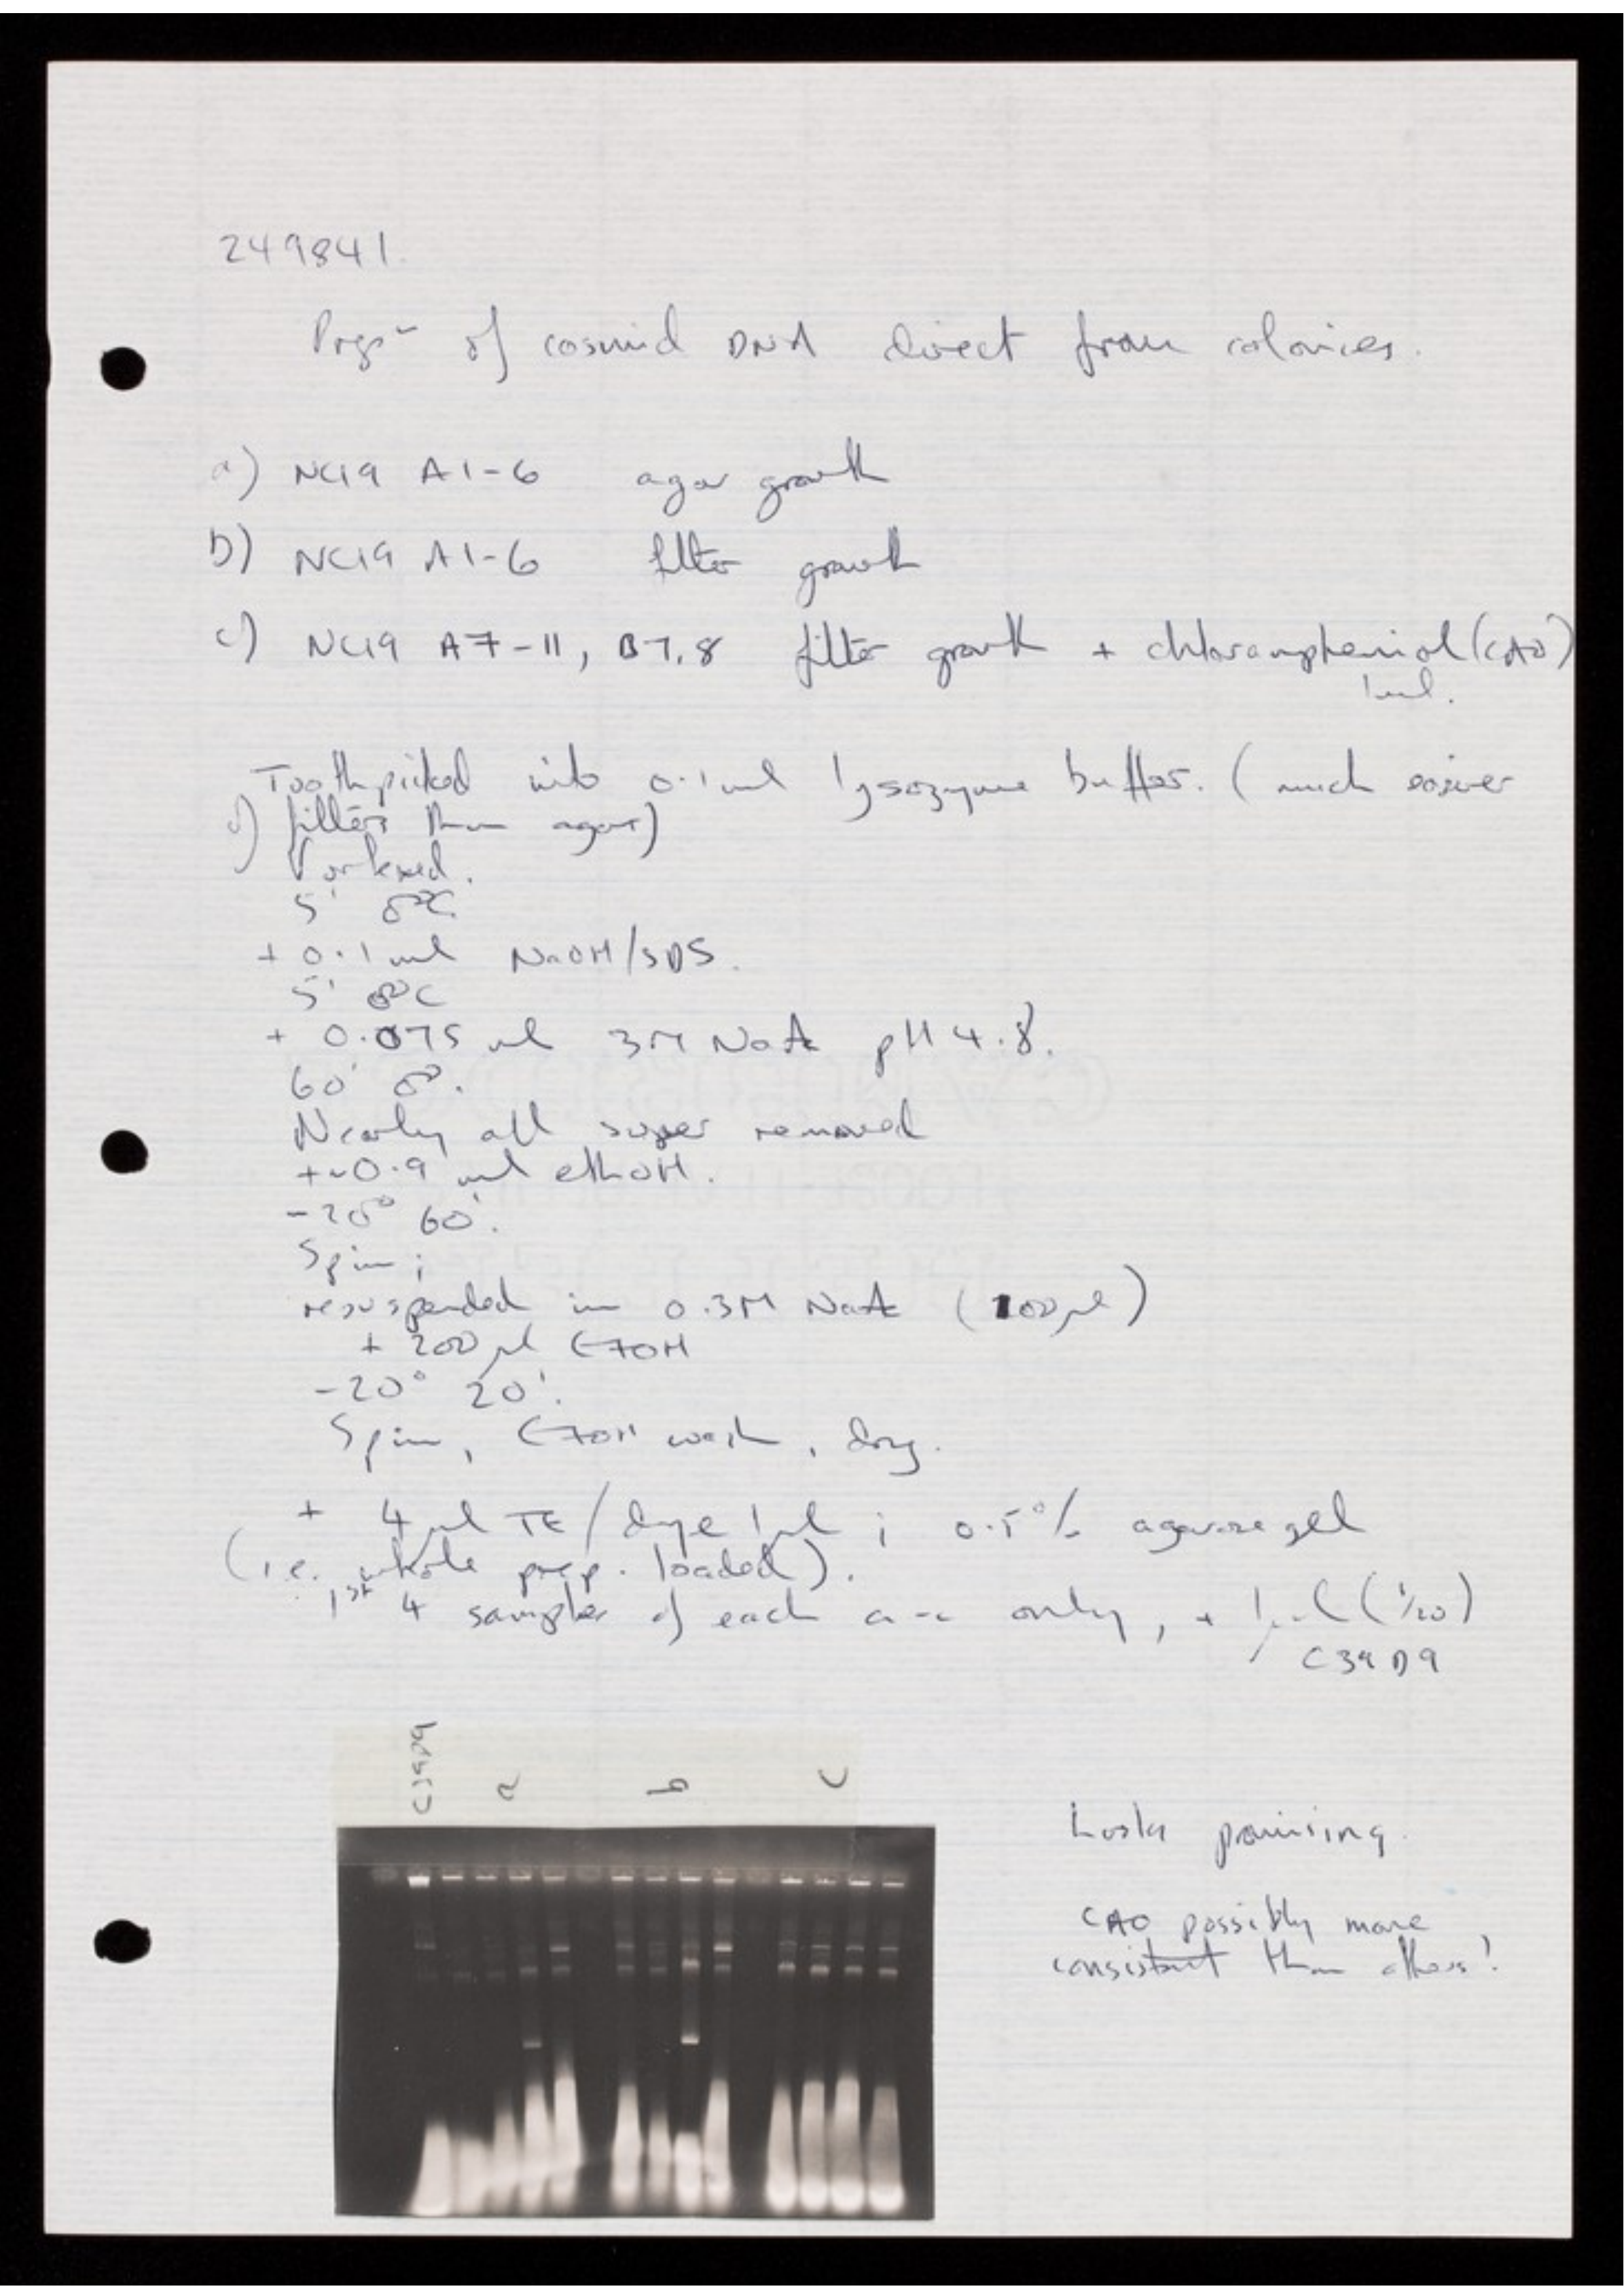 249841.
Prepn of cosmid DNA direct from colonies.
a) NC19 A1-6 agar growth
b) NC19 A1-6 filter growth
c) NC19 A7-11, B7,8 filter growth + chloramphenicol (CAO)
Toothpicked into 0.1 ml lysozyme buffer. (much easier
filters than agar)
Vortexed.
5' 0°C
+ 0.1 ml NaOH/SDS.
5' 0°C
+ 0.075 ml 3M NaA pH 4.8.
60' 0°.
Nearly all super removed
+~0.9 ml ethOH.
-20° 60'.
Spin;
resuspended in 0.3M NaA (100µl)
+ 200µl EtOH
-20° 20'.
Spin, EtOH wash, dry.
+ 4µl TE/dye 1µl ; 0.5% agarose gel
(i.e. whole prep. loaded).
1st 4 samples of each a-c only, + 1µl (1/20)
C39D9
C39D9 a b c
Looks promising.
CAO possibly more
consistent than others!